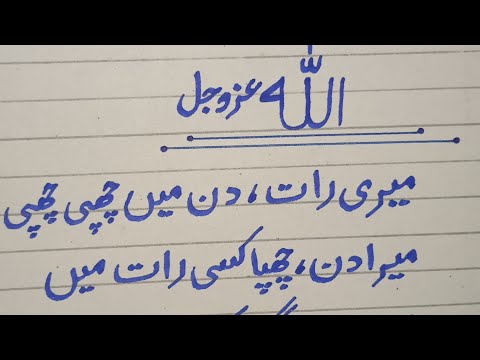 اللہ عزوجل
میری رات، دن میں چھپی چھپی
میرا دن، چھپا کسی رات میں